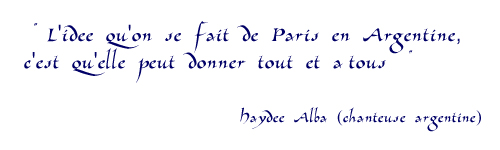 " L'idee qu'on se fait de Paris en Argentine,
c'est qu'elle peut donner tout et a tous "
Haydee Alba (chanteuse argentine)